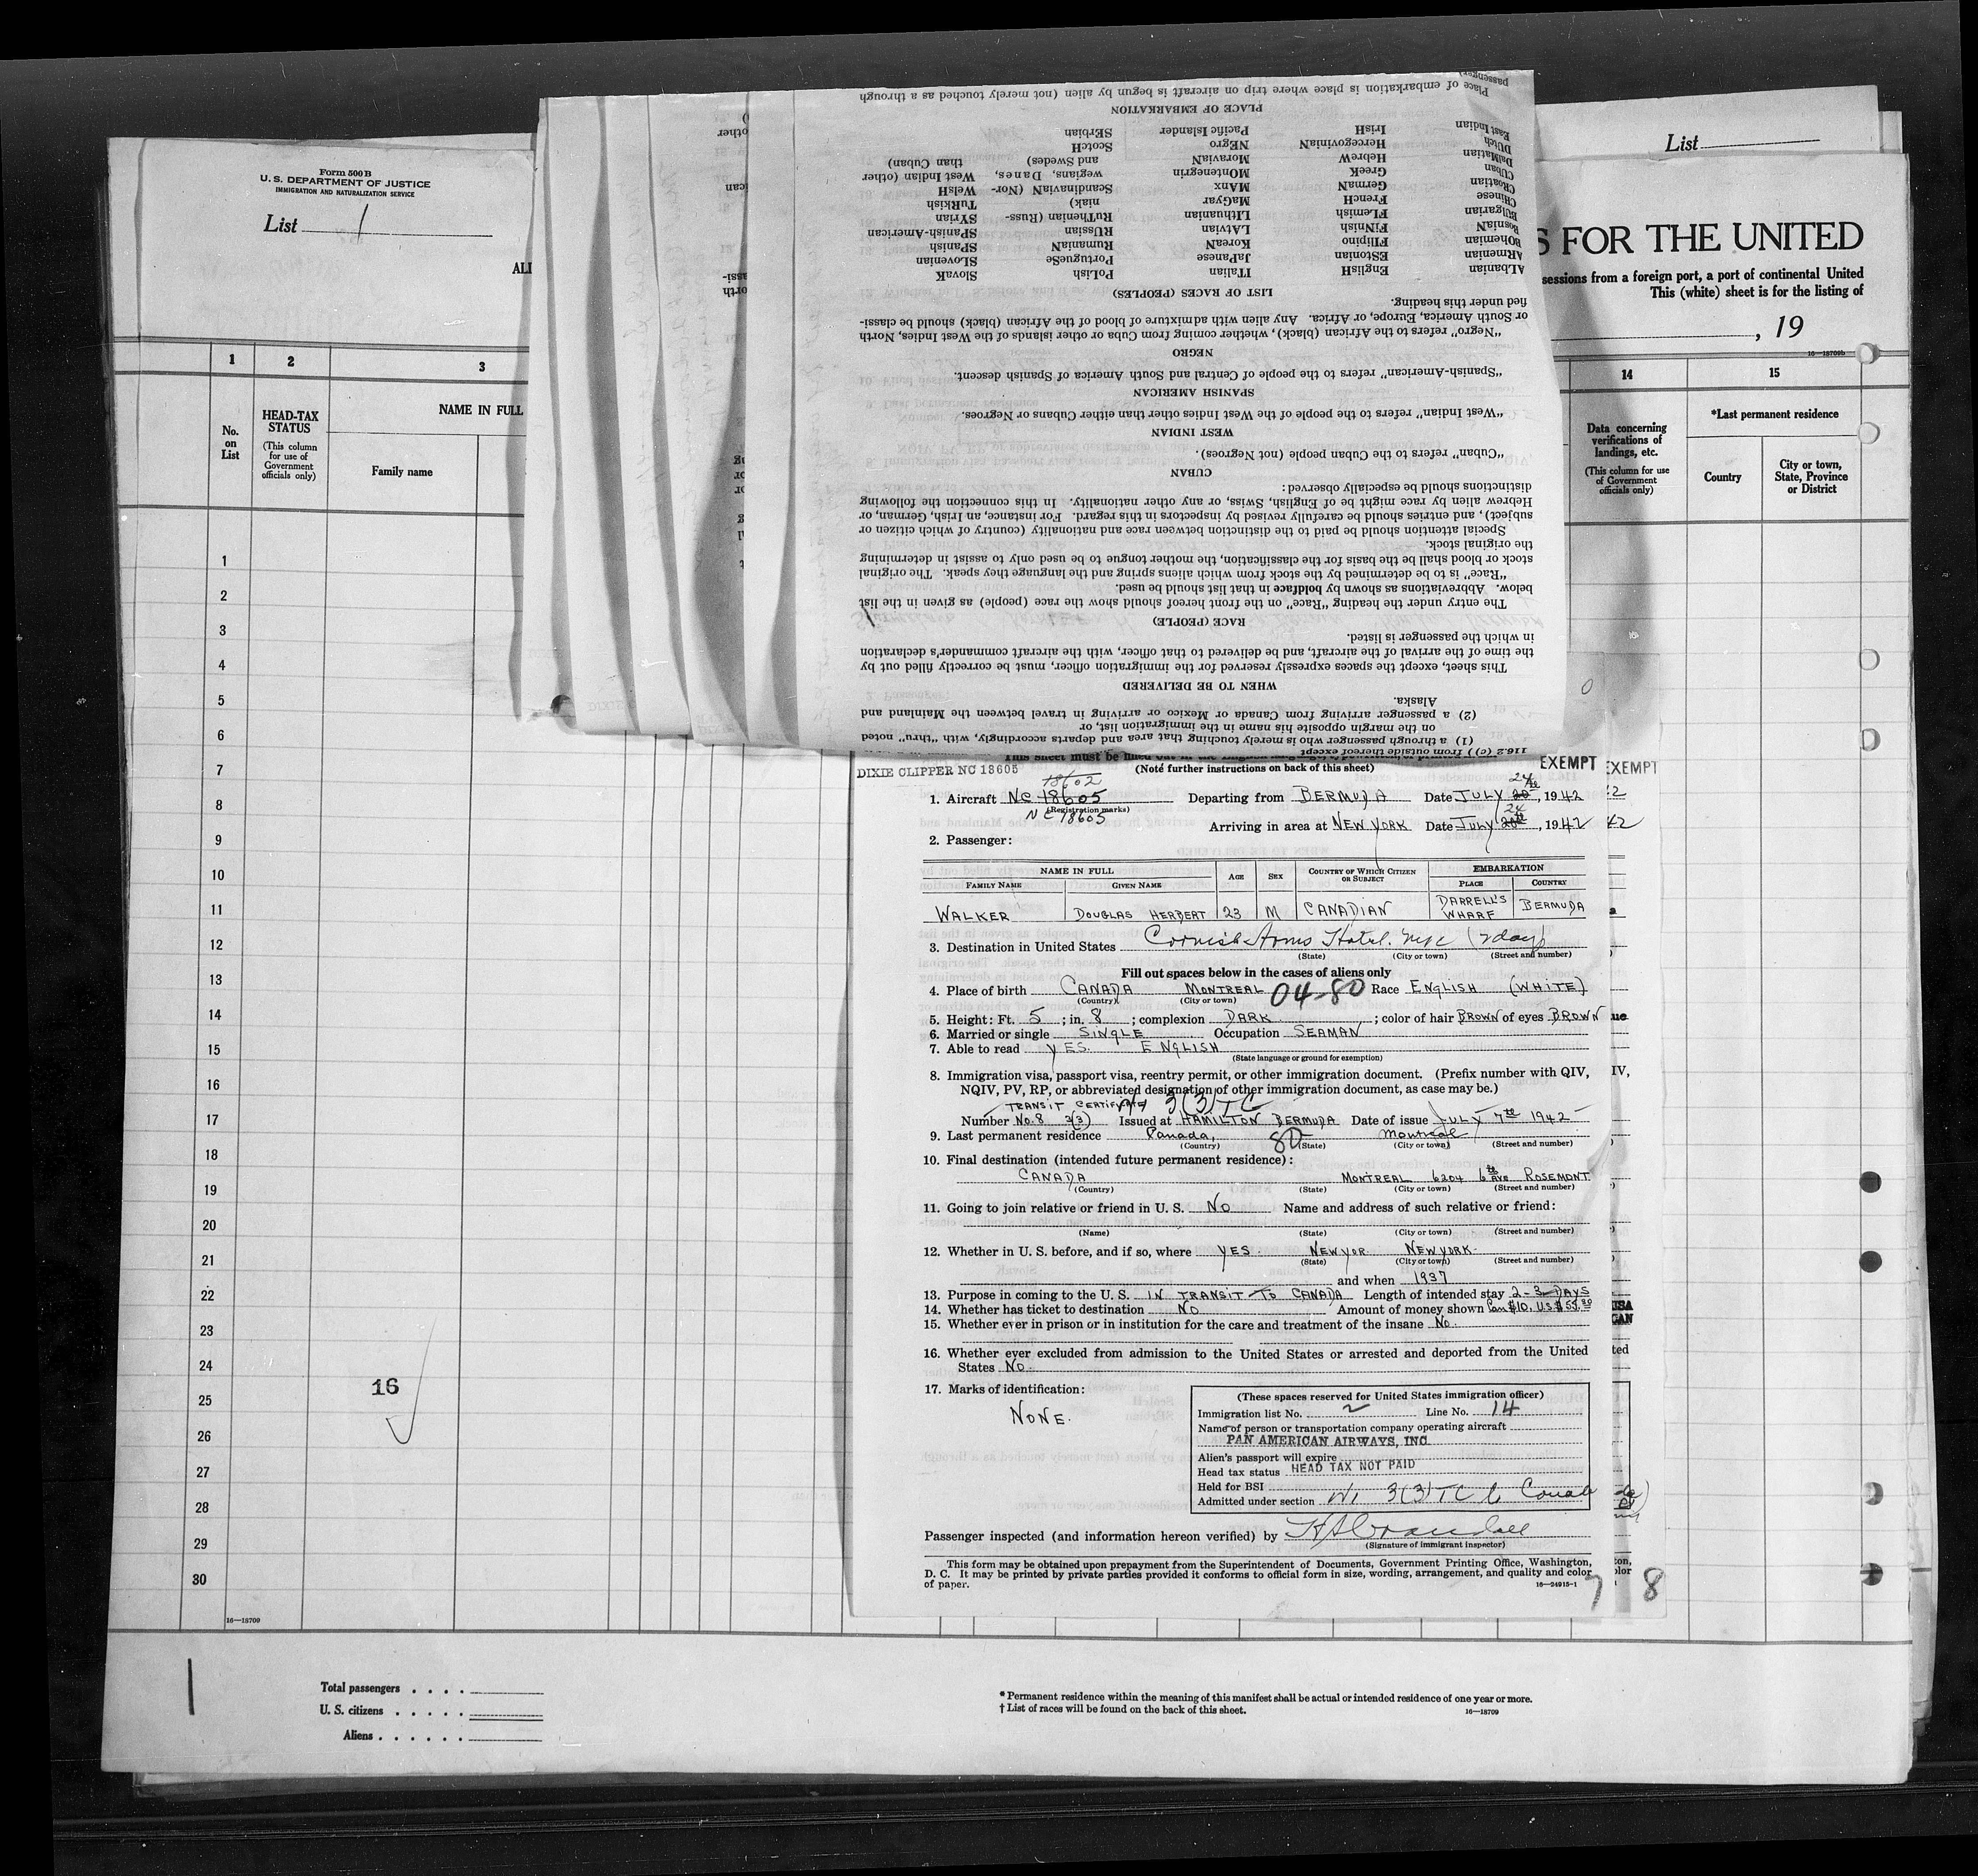 Form 500 B
U. S. DEPARTMENT OF JUSTICE
IMMIGRATION AND NATURALIZATION SERVICE
List 1
ALI
1 2 3
No. on List
HEAD-TAX STATUS
(This column for use of Government officials only)
NAME IN FULL
Family name
1
2
3
4
5
6
7
8
9
10
11
12
13
14
15
16
17
18
19
20
21
22
23
24
25
26
27
28
29
30
16
16—18709
Total passengers . . . .
U. S. citizens . . . . .
Aliens . . . . . .
* Permanent residence within the meaning of this manifest shall be actual or intended residence of one year or more.
† List of races will be found on the back of this sheet.
16—18709
List
S FOR THE UNITED
sessions from a foreign port, a port of continental United
This (white) sheet is for the listing of
, 19
16—18709b
14 15
Data concerning verifications of landings, etc.
(This column for use of Government officials only)
*Last permanent residence
Country
City or town, State, Province or District
(1) a through passenger who is merely touching that area and departs accordingly, with "thru" noted
on the margin opposite his name in the immigration list, or
(2) a passenger arriving from Canada or Mexico or arriving in travel between the Mainland and
Alaska.
WHEN TO BE DELIVERED
This sheet, except the spaces expressly reserved for the immigration officer, must be correctly filled out by
the time of the arrival of the aircraft, and be delivered to that officer, with the aircraft commander's declaration
in which the passenger is listed.
RACE (PEOPLE)
The entry under the heading "Race" on the front hereof should show the race (people) as given in the list
below. Abbreviations as shown by boldface in that list should be used.
"Race" is to be determined by the stock from which aliens spring and the language they speak. The original
stock or blood shall be the basis for the classification, the mother tongue to be used only to assist in determining
the original stock.
Special attention should be paid to the distinction between race and nationality (country of which citizen or
subject), and entries should be carefully revised by inspectors in this regard. For instance, an Irish, German, or
Hebrew alien by race might be of English, Swiss, or any other nationality. In this connection the following
distinctions should be especially observed:
CUBAN
"Cuban" refers to the Cuban people (not Negroes).
WEST INDIAN
"West Indian" refers to the people of the West Indies other than either Cubans or Negroes.
SPANISH AMERICAN
"Spanish-American" refers to the people of Central and South America of Spanish descent.
NEGRO
"Negro" refers to the African (black), whether coming from Cuba or other islands of the West Indies, North
or South America, Europe, or Africa. Any alien with admixture of blood of the African (black) should be classi-
fied under this heading.
LIST OF RACES (PEOPLES)
ALbanian ENglisH ITalian PoLish SlovaK
ARmenian EStonian JaPanese PortugueSe SLovenian
BOhemian Filipino KoreaN RumaniaN SPanish
BosniaN FiNnish LAtvian RUssian SPanish-American
BUlgarian FLemish LIthuanian RuThenian (Russ- SYrian
CHinese FrencH MaGyar niak) TuRkish
CRoatian GermaN MAnx ScandinaviaN (Nor- WelsH
CUban GreeK MOntenegrin wegians, Danes, West Indian (other
DalMatian HebreW MoraviaN and Swedes) than Cuban)
DUtch HercegoviniaN NEgro ScotcH
East Indian IrisH Pacific Islander SErbian
PLACE OF EMBARKATION
Place of embarkation is place where trip on aircraft is begun by alien (not merely touched as a through
passenger)
DIXIE CLIPPER NC 18605
(Note further instructions on back of this sheet)
EXEMPT EXEMPT
18602
1. Aircraft NC 18605 Departing from BERMUDA Date JULY 24th, 1942
(Registration marks)
NC 18605
Arriving in area at NEW YORK Date JULY 24, 1942
2. Passenger:
NAME IN FULL AGE SEX COUNTRY OF WHICH CITIZEN OR SUBJECT EMBARKATION
FAMILY NAME GIVEN NAME PLACE COUNTRY
WALKER DOUGLAS HERBERT 23 M CANADIAN DARRELL'S WHARF BERMUDA
3. Destination in United States Cornish Arms Hotel. nyc (2 days)
(State) (City or town) (Street and number)
Fill out spaces below in the cases of aliens only
4. Place of birth CANADA MONTREAL 04-80 Race ENGLISH (WHITE)
(Country) (City or town)
5. Height: Ft. 5; in. 8; complexion DARK; color of hair BROWN of eyes BROWN
6. Married or single SINGLE Occupation SEAMAN
7. Able to read YES. ENGLISH
(State language or ground for exemption)
8. Immigration visa, passport visa, reentry permit, or other immigration document. (Prefix number with QIV,
NQIV, PV, RP, or abbreviated designation of other immigration document, as case may be.)
TRANSIT CERTIFICATE 3(3)TC
Number No. 8 3(3) Issued at HAMILTON BERMUDA Date of issue JULY 7th 1942
9. Last permanent residence Canada, 80 Montreal
(Country) (State) (City or town) (Street and number)
10. Final destination (intended future permanent residence):
CANADA MONTREAL 6204 6th AVE ROSEMONT
(Country) (State) (City or town) (Street and number)
11. Going to join relative or friend in U. S. NO Name and address of such relative or friend:
(Name) (State) (City or town) (Street and number)
12. Whether in U. S. before, and if so, where YES. NEW YOR NEW YORK.
(State) (City or town) (Street and number)
and when 1937
13. Purpose in coming to the U. S. IN TRANSIT TO CANADA Length of intended stay 2-3 DAYS
14. Whether has ticket to destination NO Amount of money shown Can $10. U.S $55.80
15. Whether ever in prison or in institution for the care and treatment of the insane NO.
16. Whether ever excluded from admission to the United States or arrested and deported from the United
States NO.
17. Marks of identification:
NONE.
(These spaces reserved for United States immigration officer)
Immigration list No. 2 Line No. 14
Name of person or transportation company operating aircraft
PAN AMERICAN AIRWAYS, INC
Alien's passport will expire
Head tax status HEAD TAX NOT PAID
Held for BSI
Admitted under section 3(3)TC
Passenger inspected (and information hereon verified) by
(Signature of immigrant inspector)
This form may be obtained upon prepayment from the Superintendent of Documents, Government Printing Office, Washington,
D. C. It may be printed by private parties provided it conforms to official form in size, wording, arrangement, and quality and color
of paper.
16—24915-1
7 8